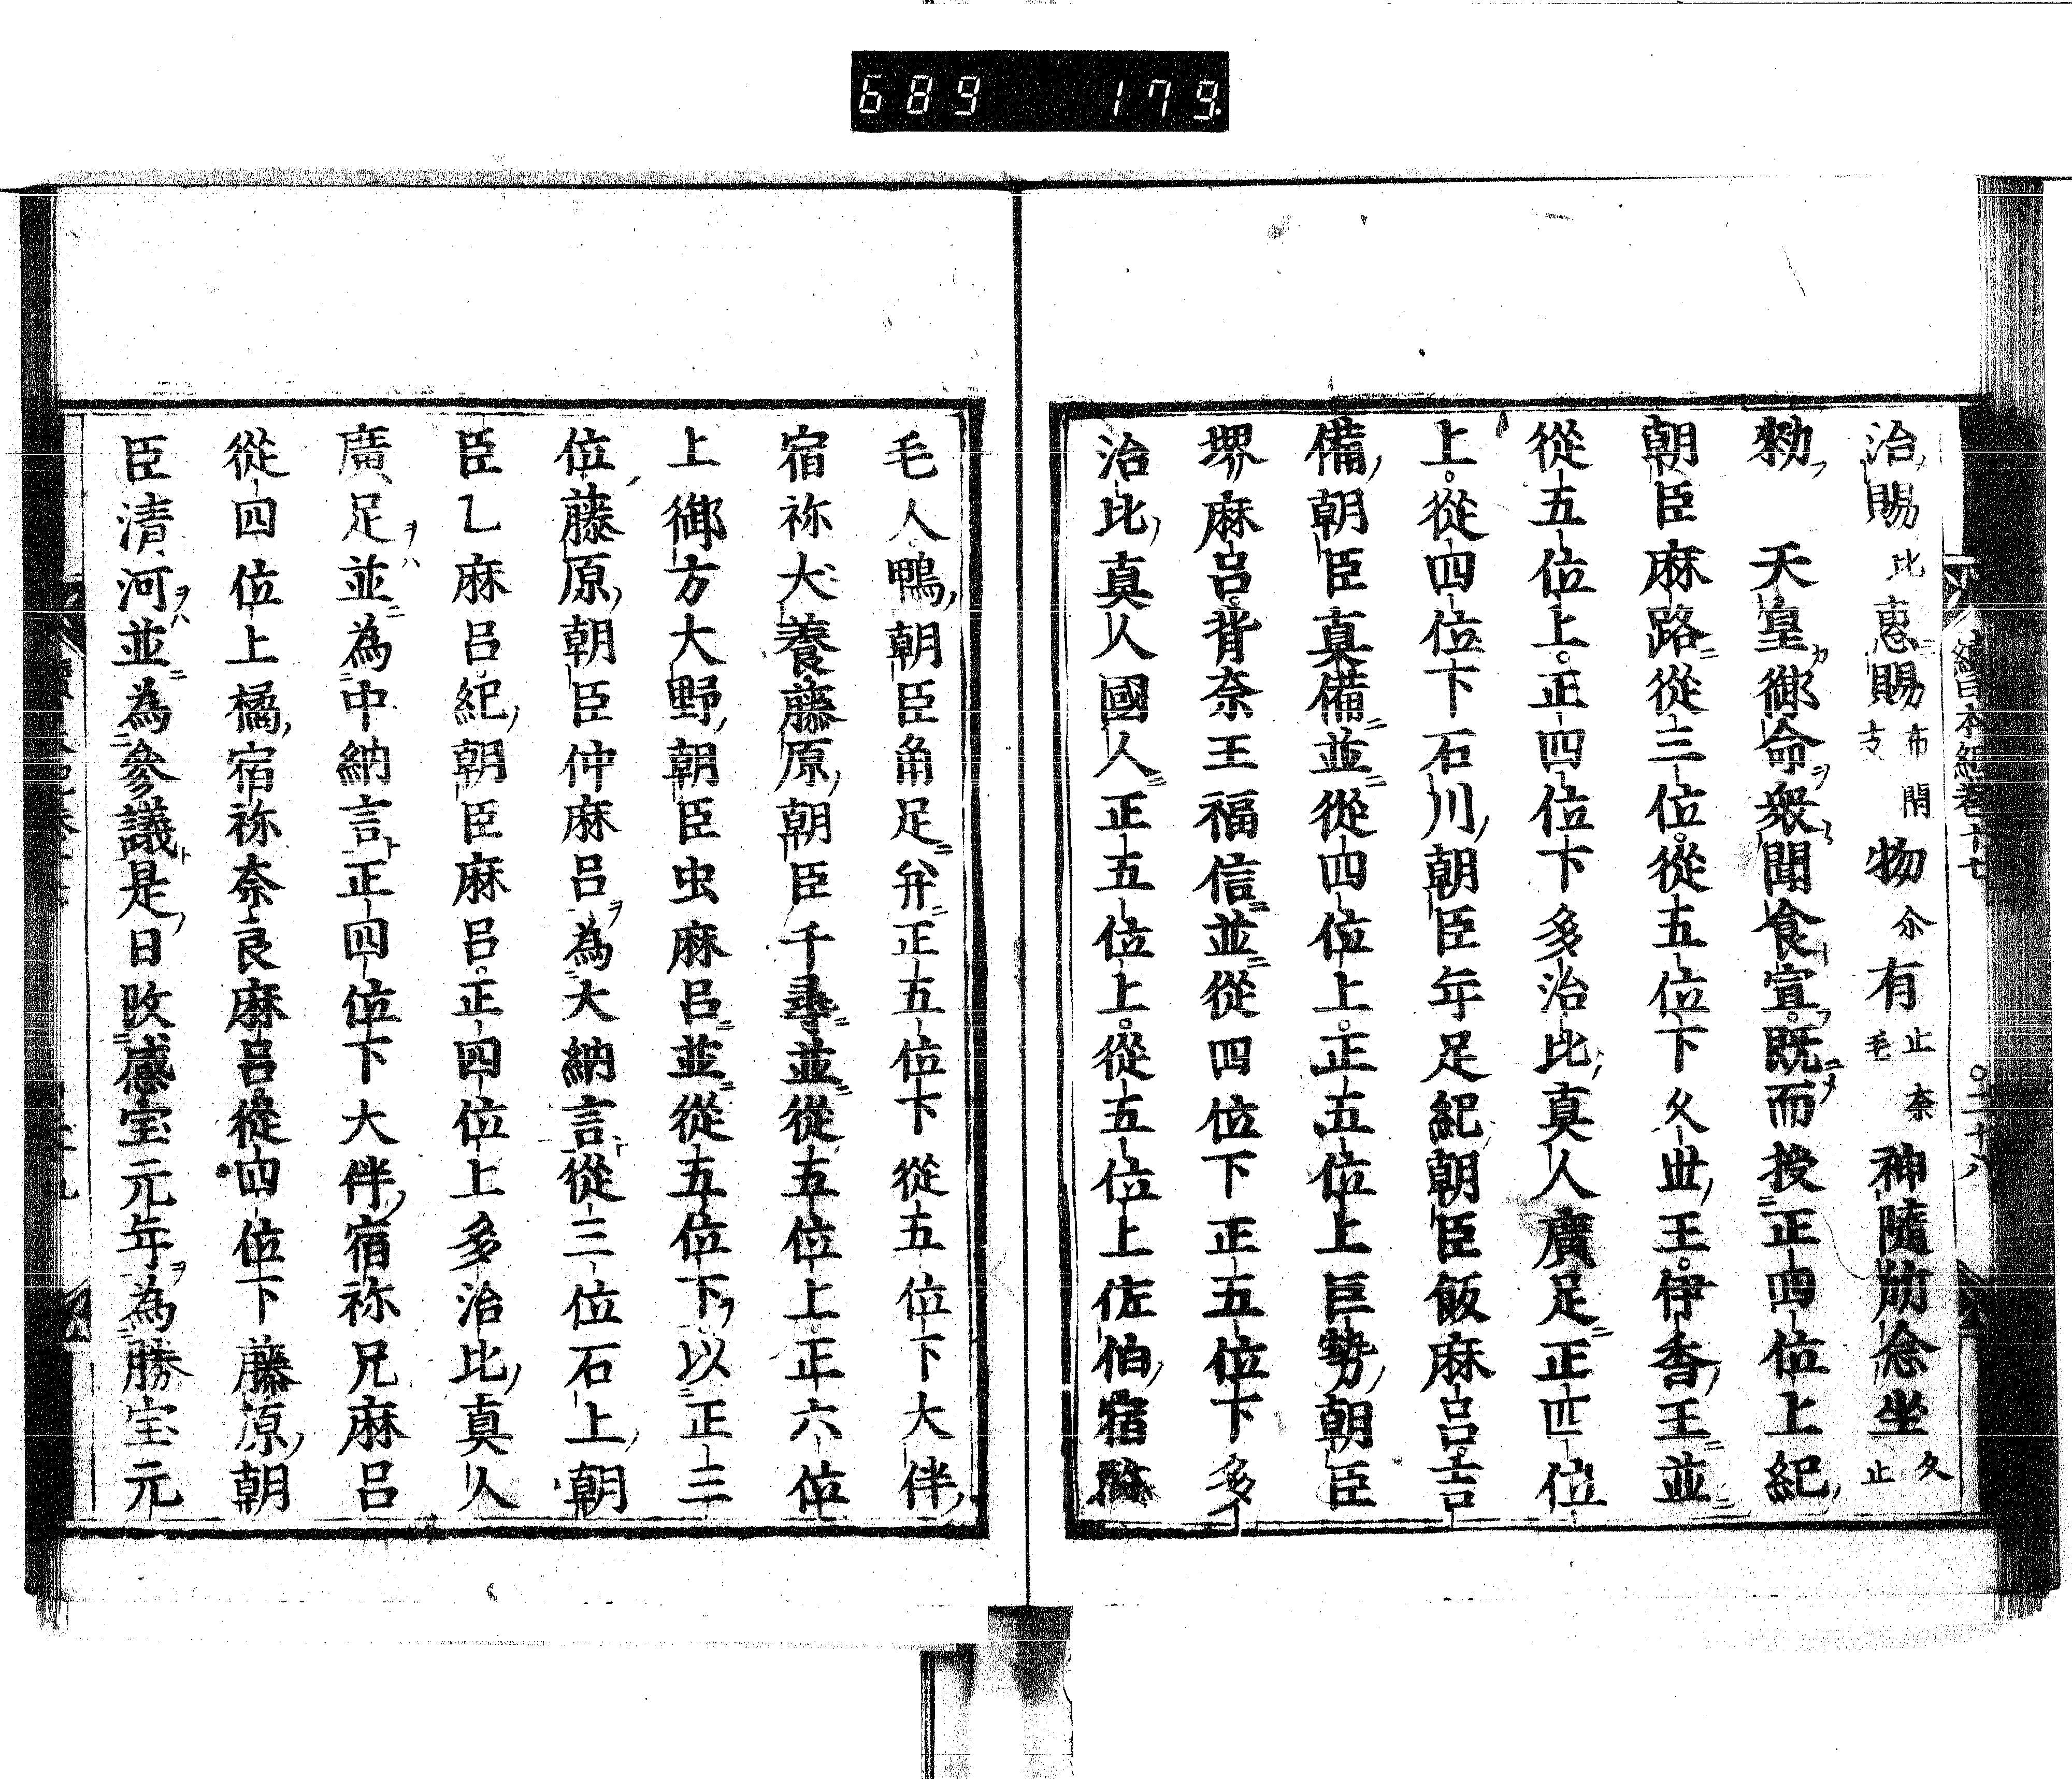 689 179.
續日本紀卷十七 ○二十八
治賜比惠賜布支閇物尒有止毛奈神隨所念坐久止
勑 天皇御命衆聞食宣既而授正四位上紀
朝臣麻路從三位從五位下久世王伊香王並
從五位上正四位下多治比真人廣足正四位
上從四位下石川朝臣年足紀朝臣飯麻呂吉
備朝臣真備並從四位上正五位上巨勢朝臣
堺麻呂背奈王福信並從四位下正五位下多
治比真人國人正五位上從五位上佐伯宿祢
毛人鴨朝臣角足并正五位下從五位下大伴
宿祢犬養藤原朝臣千尋並從五位上正六位
上御方大野朝臣虫麻呂並從五位下以正三
位藤原朝臣仲麻呂為大納言從三位石上朝
臣乙麻呂紀朝臣麻呂正四位上多治比真人
廣足並為中納言正四位下大伴宿祢兄麻呂
從四位上橘宿祢奈良麻呂從四位下藤原朝
臣清河並為參議是日改感宝元年為勝宝元